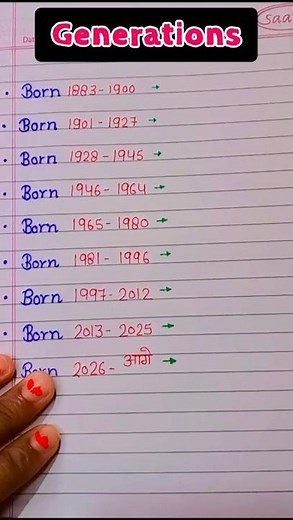 saa
Generations
Da
• Born 1883-1900 →
• Born 1901-1927 →
• Born 1928-1945 →
• Born 1946-1964 →
• Born 1965-1980 →
• Born 1981-1996 →
• Born 1997-2012 →
• Born 2013-2025 →
Born 2026- आगे →